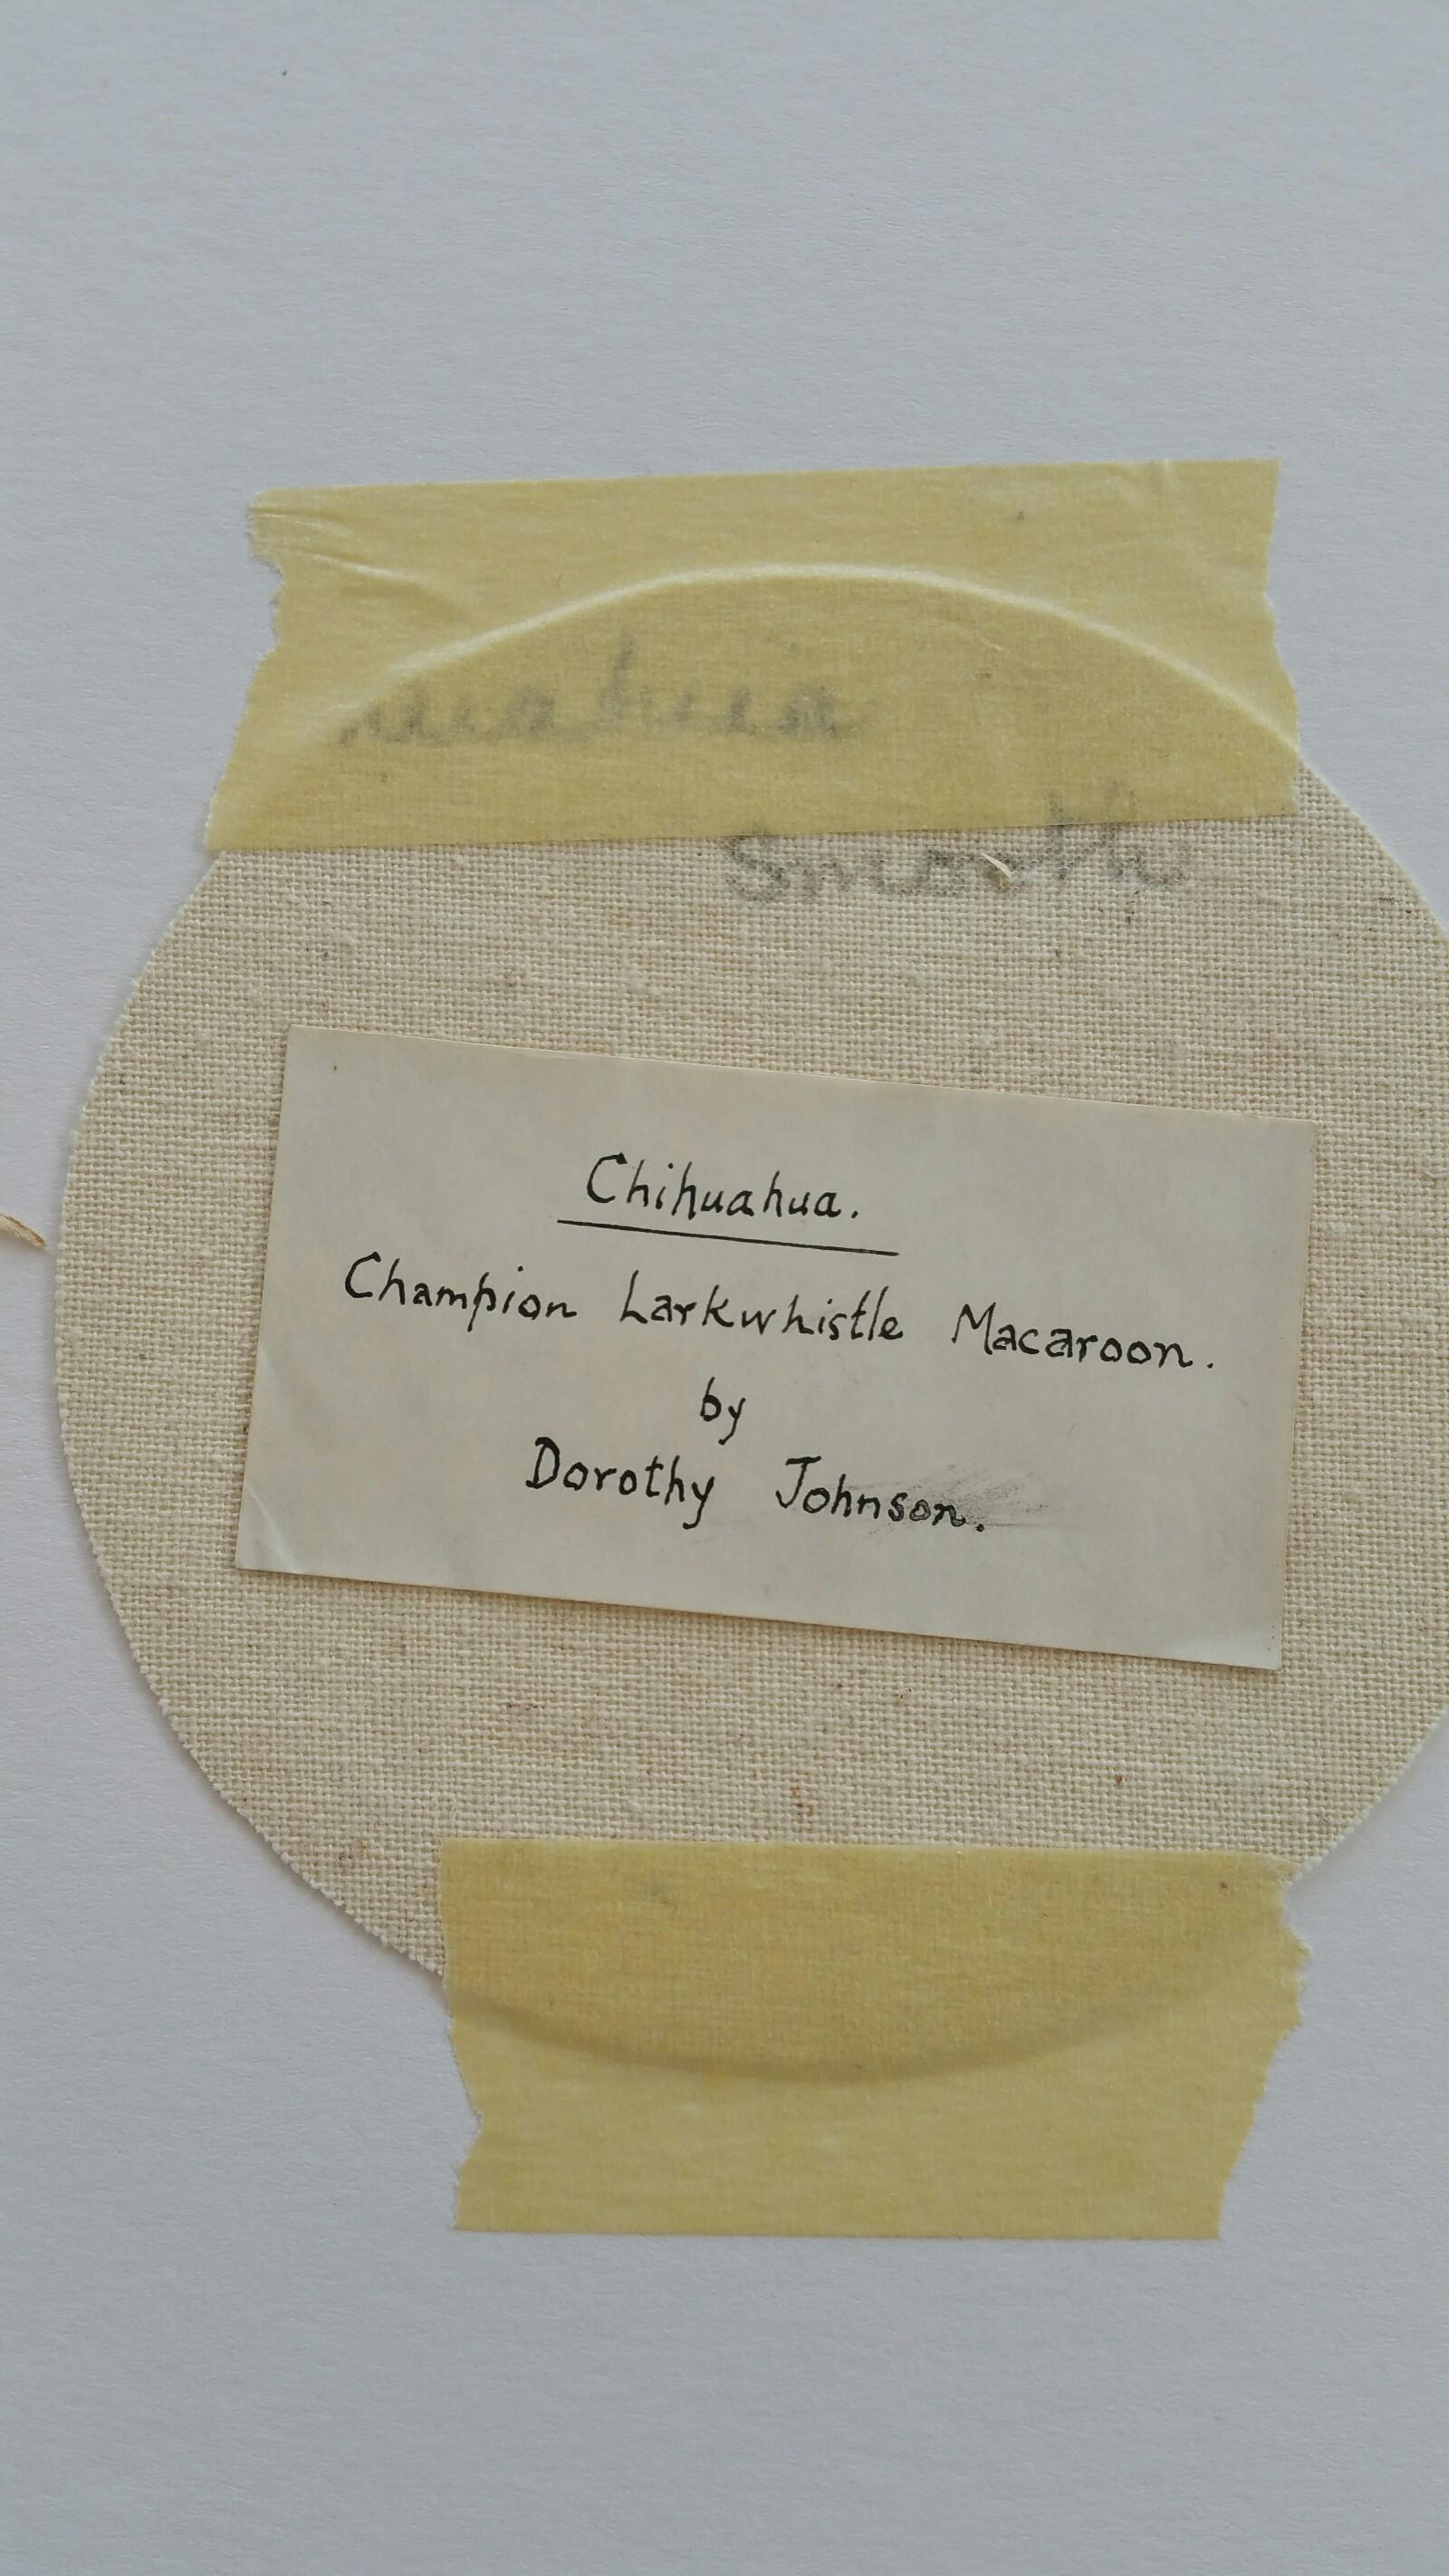 uahua
Smooth
Chihuahua.
Champion Larkwhistle Macaroon.
by
Dorothy Johnson.